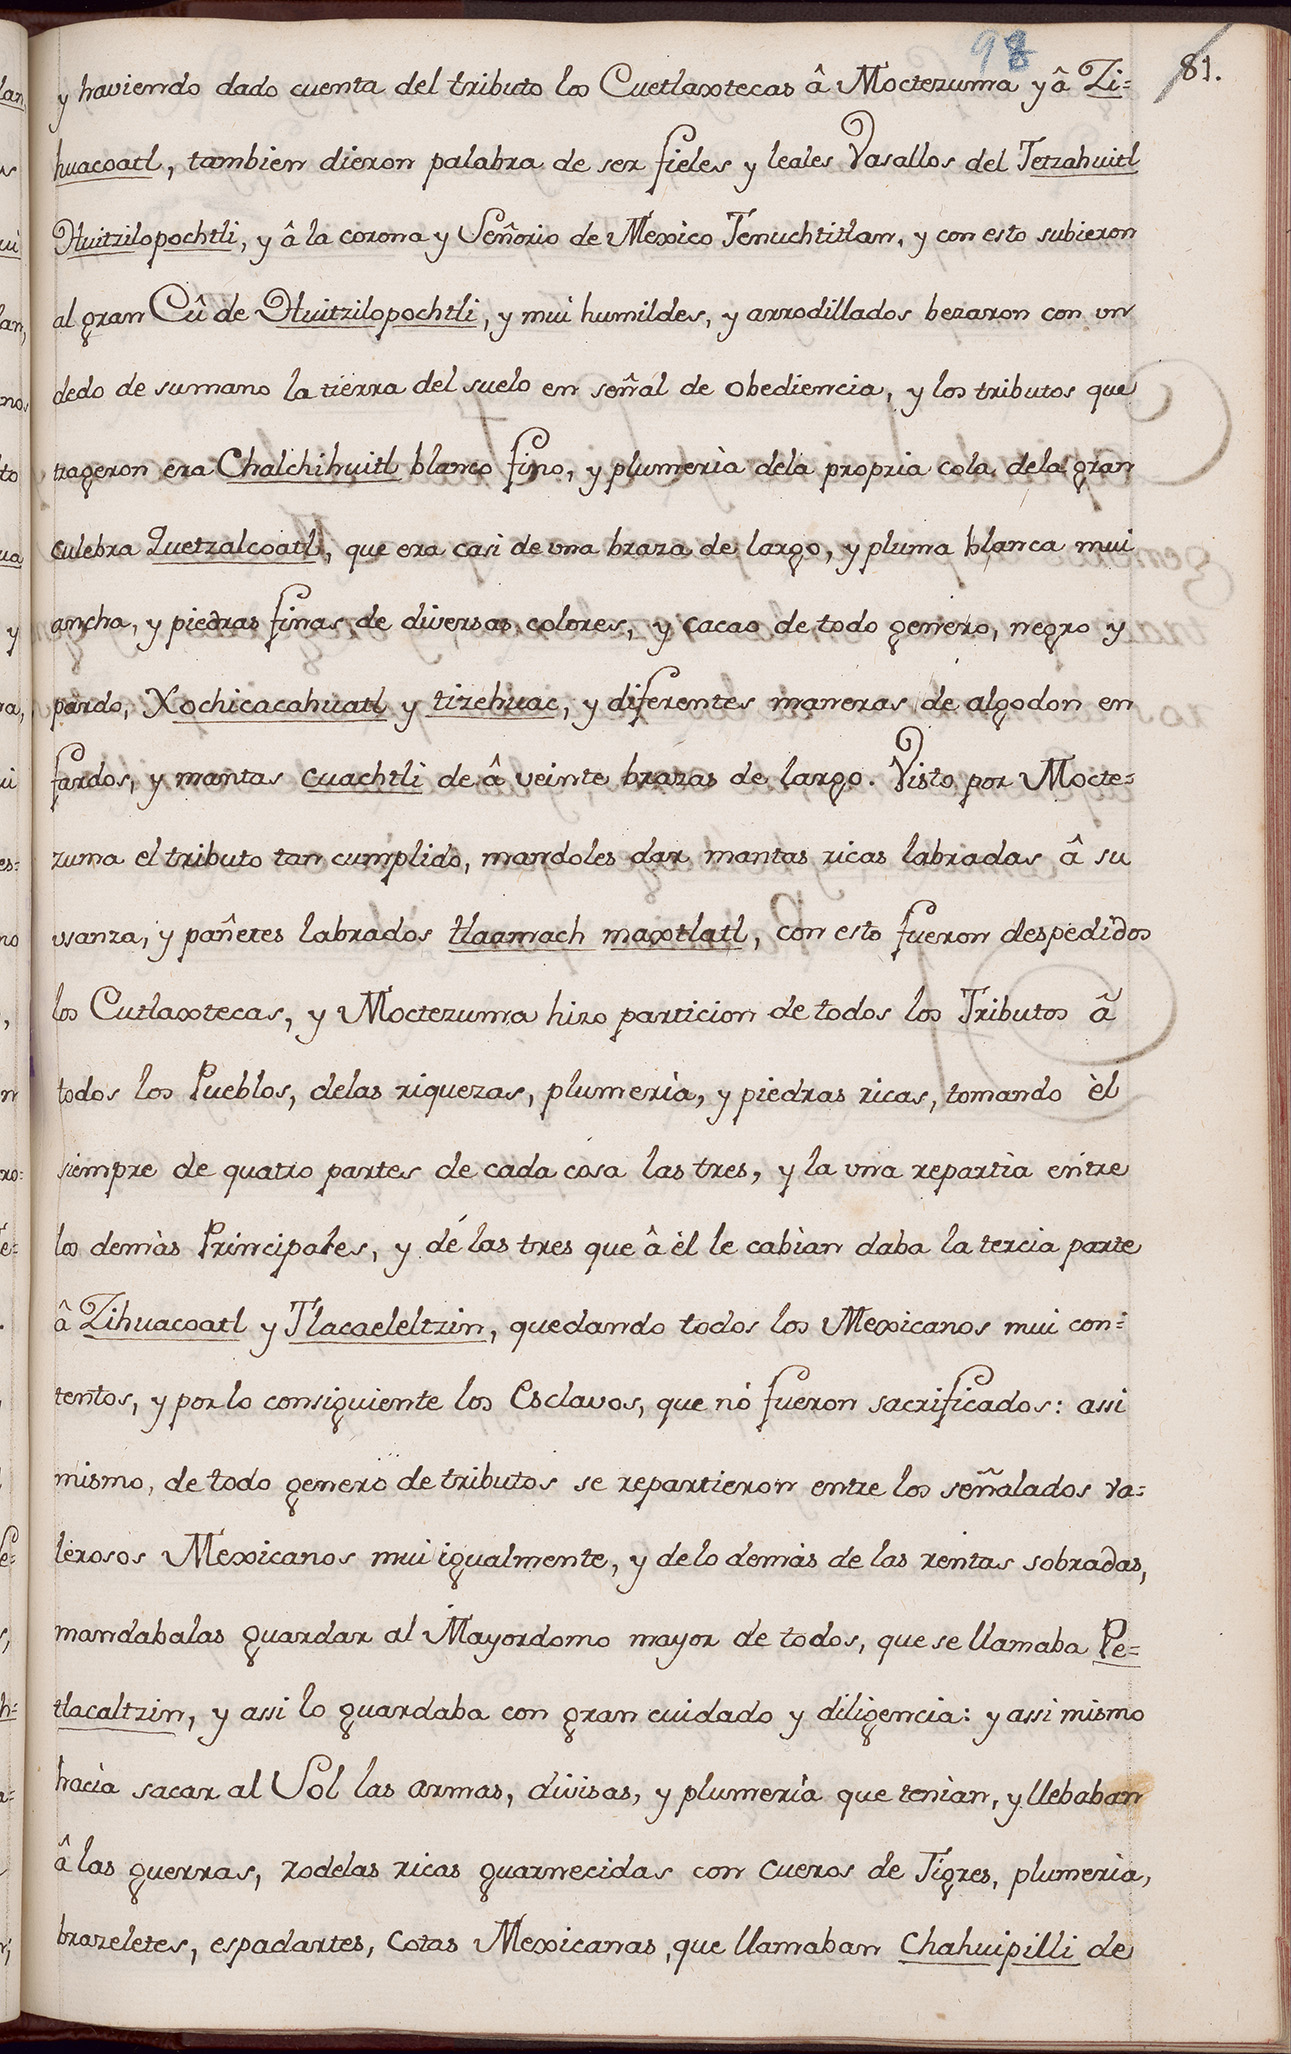 98
81.
y haviendo dado cuenta del tributo los Cuetlaxtecas â Moctezuma y â Zi=
huacoatl, tambien dieron palabra de ser fieles y leales Vasallos del Tetzahuitl
Huitzilopochtli, y â la corona y Señorio de Mexico Tenuchtitlan, y con esto subieron
al gran Cû de Huitzilopochtli, y mui humildes, y arrodillados bezaron con un
dedo de sumano la tierra del suelo en señal de obediencia, y los tributos que
trageron era Chalchihuitl blanco fino, y plumerìa dela propria cola dela gran
culebra Quetzalcoatl, que era casi de una braza de largo, y pluma blanca mui
ancha, y piedras finas de diversas colores, y cacao de todo genero, negro y
pardo, Xochicacahuatl y tizehuac, y diferentes maneras de algodon en
fardos, y mantas cuachtli de â veinte brazas de largo. Visto por Mocte=
zuma el tributo tan cumplido, mandoles dar mantas ricas labradas â su
usanza, y pañetes labrados tlaamach maxtlatl, con esto fueron despedidos
los Cutlaxtecas, y Moctezuma hizo particion de todos los Tributos â
todos los Pueblos, delas riquezas, plumerìa, y piedras ricas, tomando èl
siempre de quatro partes de cada cosa las tres, y la una repartìa entre
los demàs Principales, y de las tres que â èl le cabìan daba la tercia parte
â Zihuacoatl y Tlacaeleltzin, quedando todos los Mexicanos mui con=
tentos, y por lo consiguiente los Esclavos, que nò fueron sacrificados: assi
mismo, de todo genero de tributos se repartieron entre los señalados va=
lerosos Mexicanos mui igualmente, y de lo demàs de las rentas sobradas,
mandabalas guardar al Mayordomo mayor de todos, que se llamaba Pe=
tlacaltzin, y assi lo guardaba con gran cuidado y diligencia: y assi mismo
hacìa sacar al Sol las armas, divisas, y plumerìa que tenìan, y llebaban
â las guerras, rodelas ricas guarnecidas con cueros de Tigres, plumerìa,
brazeletes, espadartes, cotas Mexicanas, que llamaban Chahuipilli de